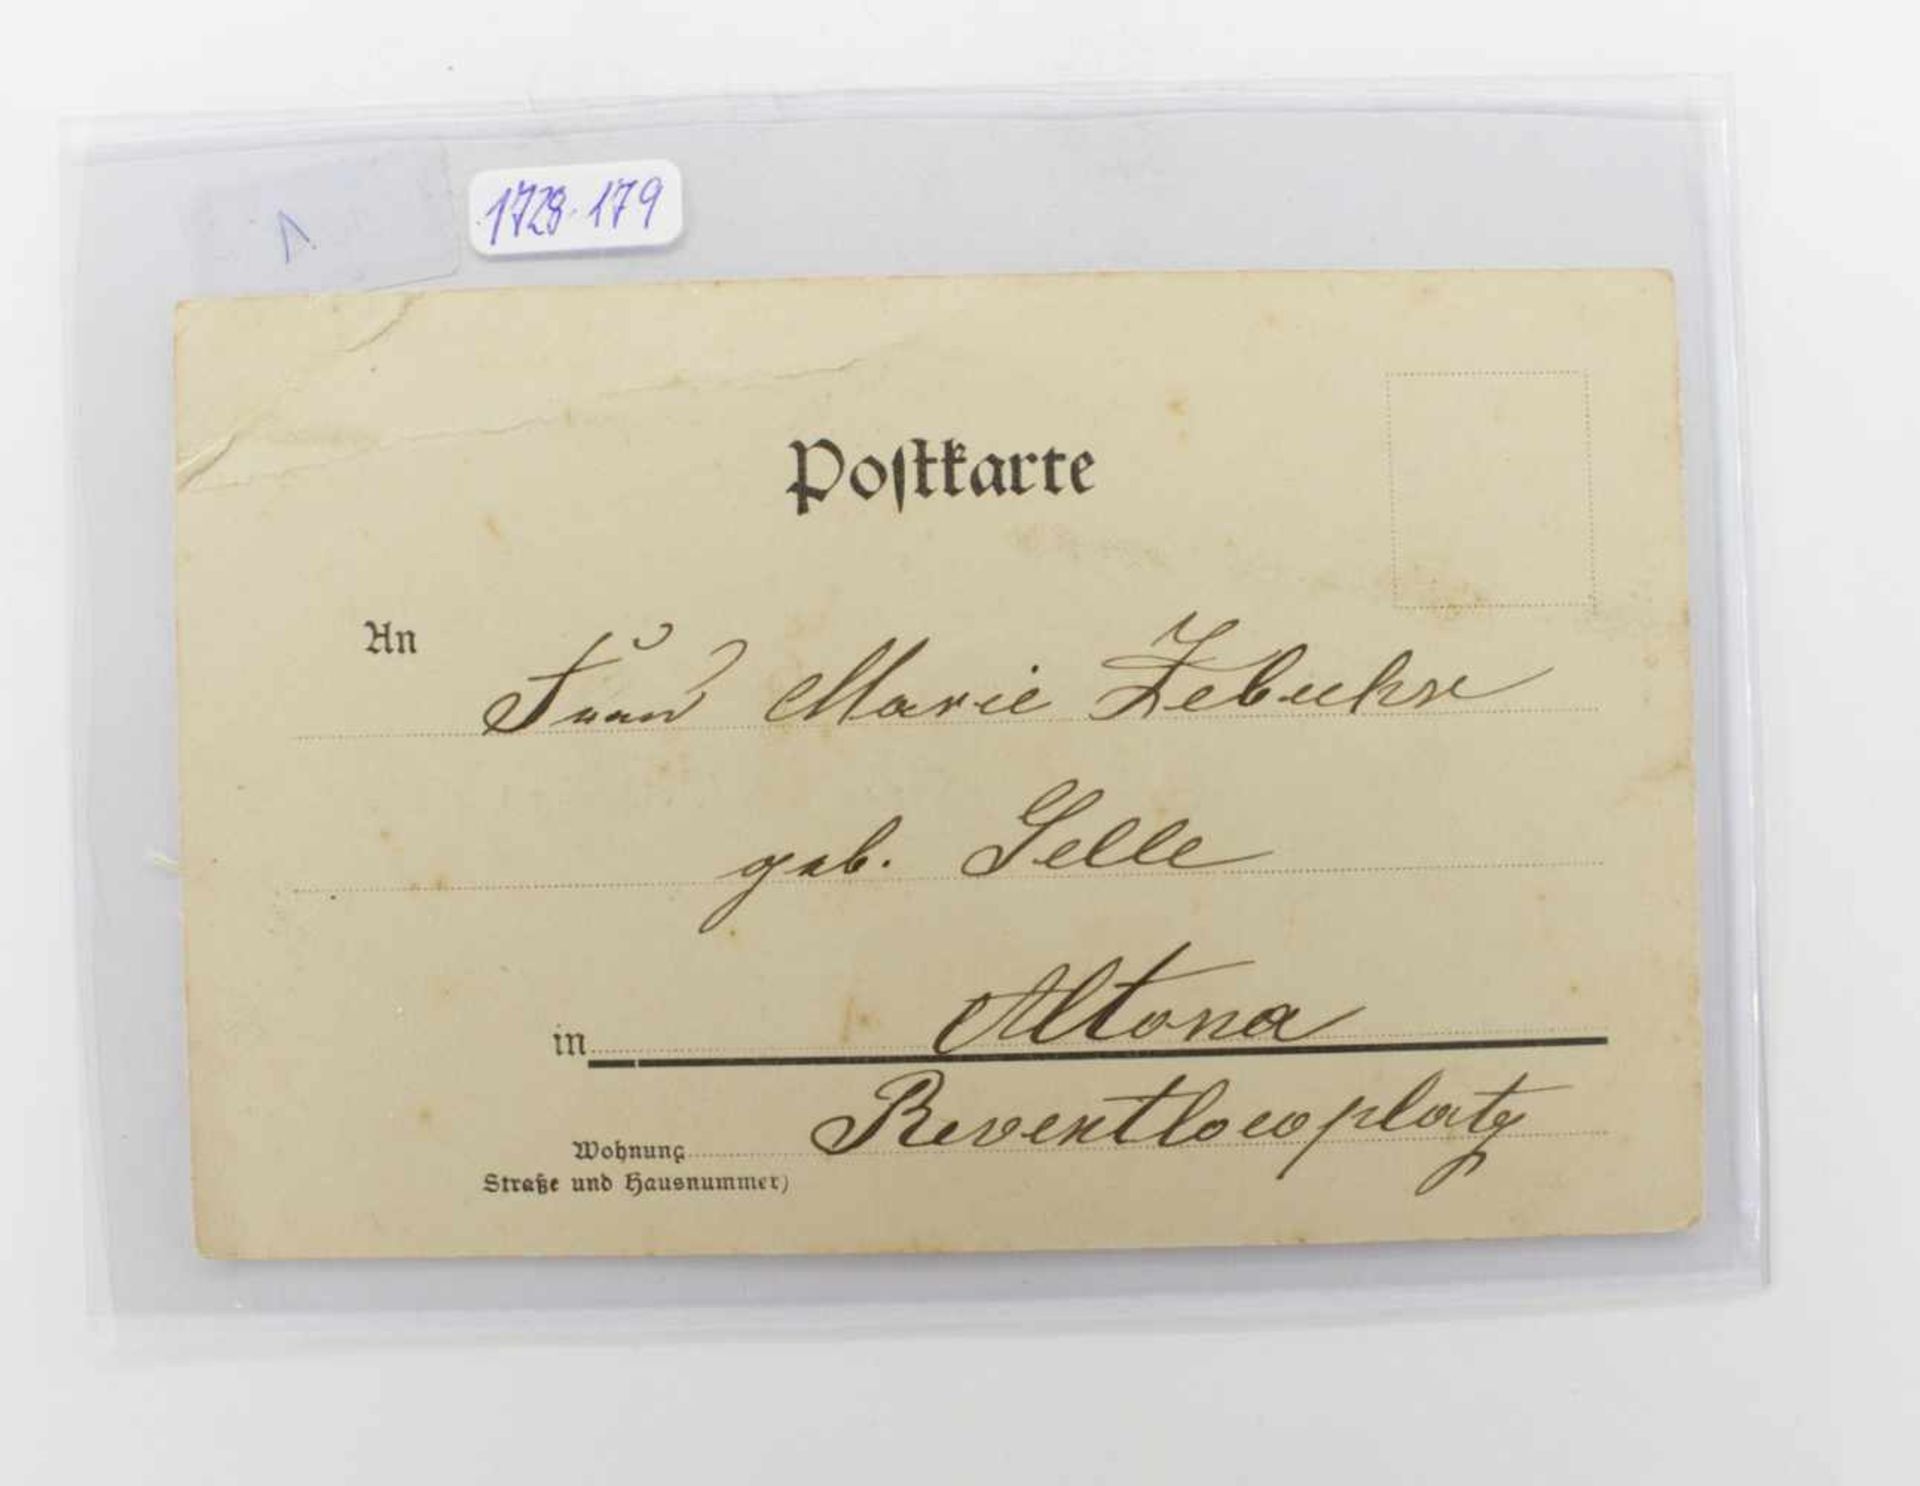 1728-179
Postkarte
An
Frau Marie Zebuhr
geb. Selle
in Altona
Wohnung Reventlowplatz
Straße und Hausnummer)